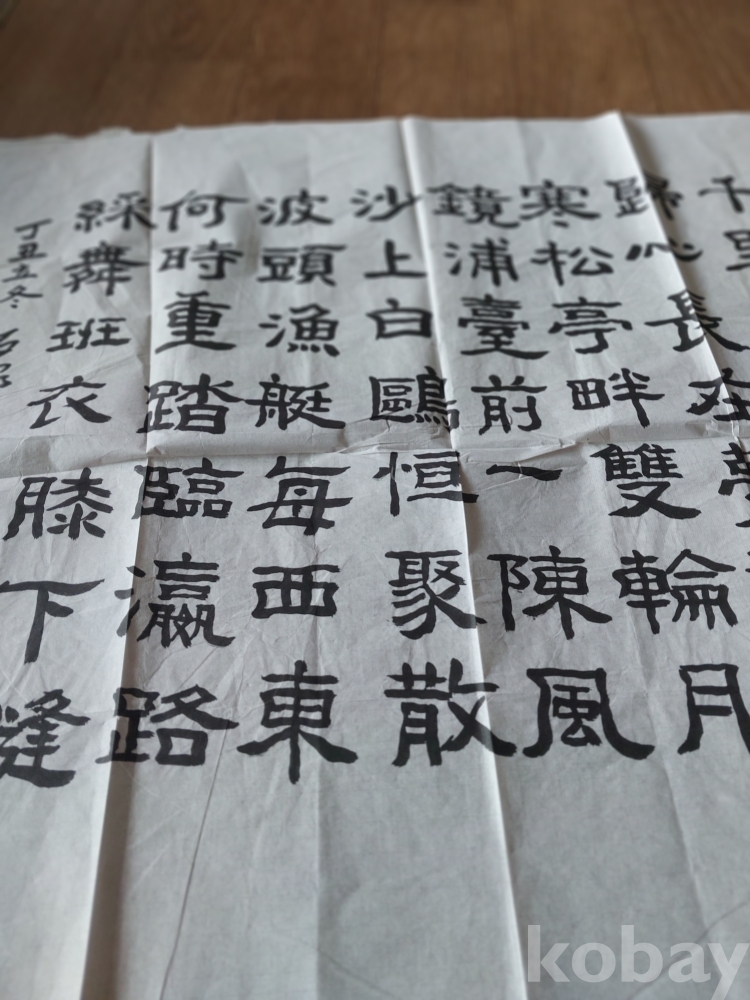 千里
歸心長在夢
寒松亭畔雙輪月
鏡浦臺前一陳風
沙上白鷗恒聚散
波頭漁艇每西東
何時重踏臨瀛路
綵舞班衣膝下縫
丁丑立冬
kobay